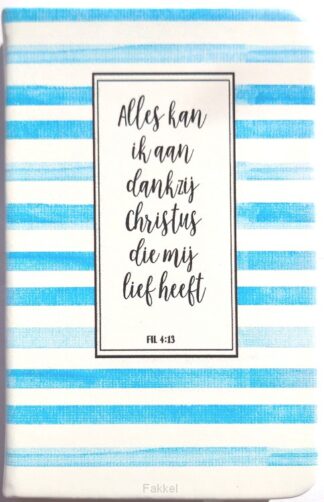 Alles kan
ik aan
dankzij
christus
die mij
lief heeft
FIL 4:13
Fakkel